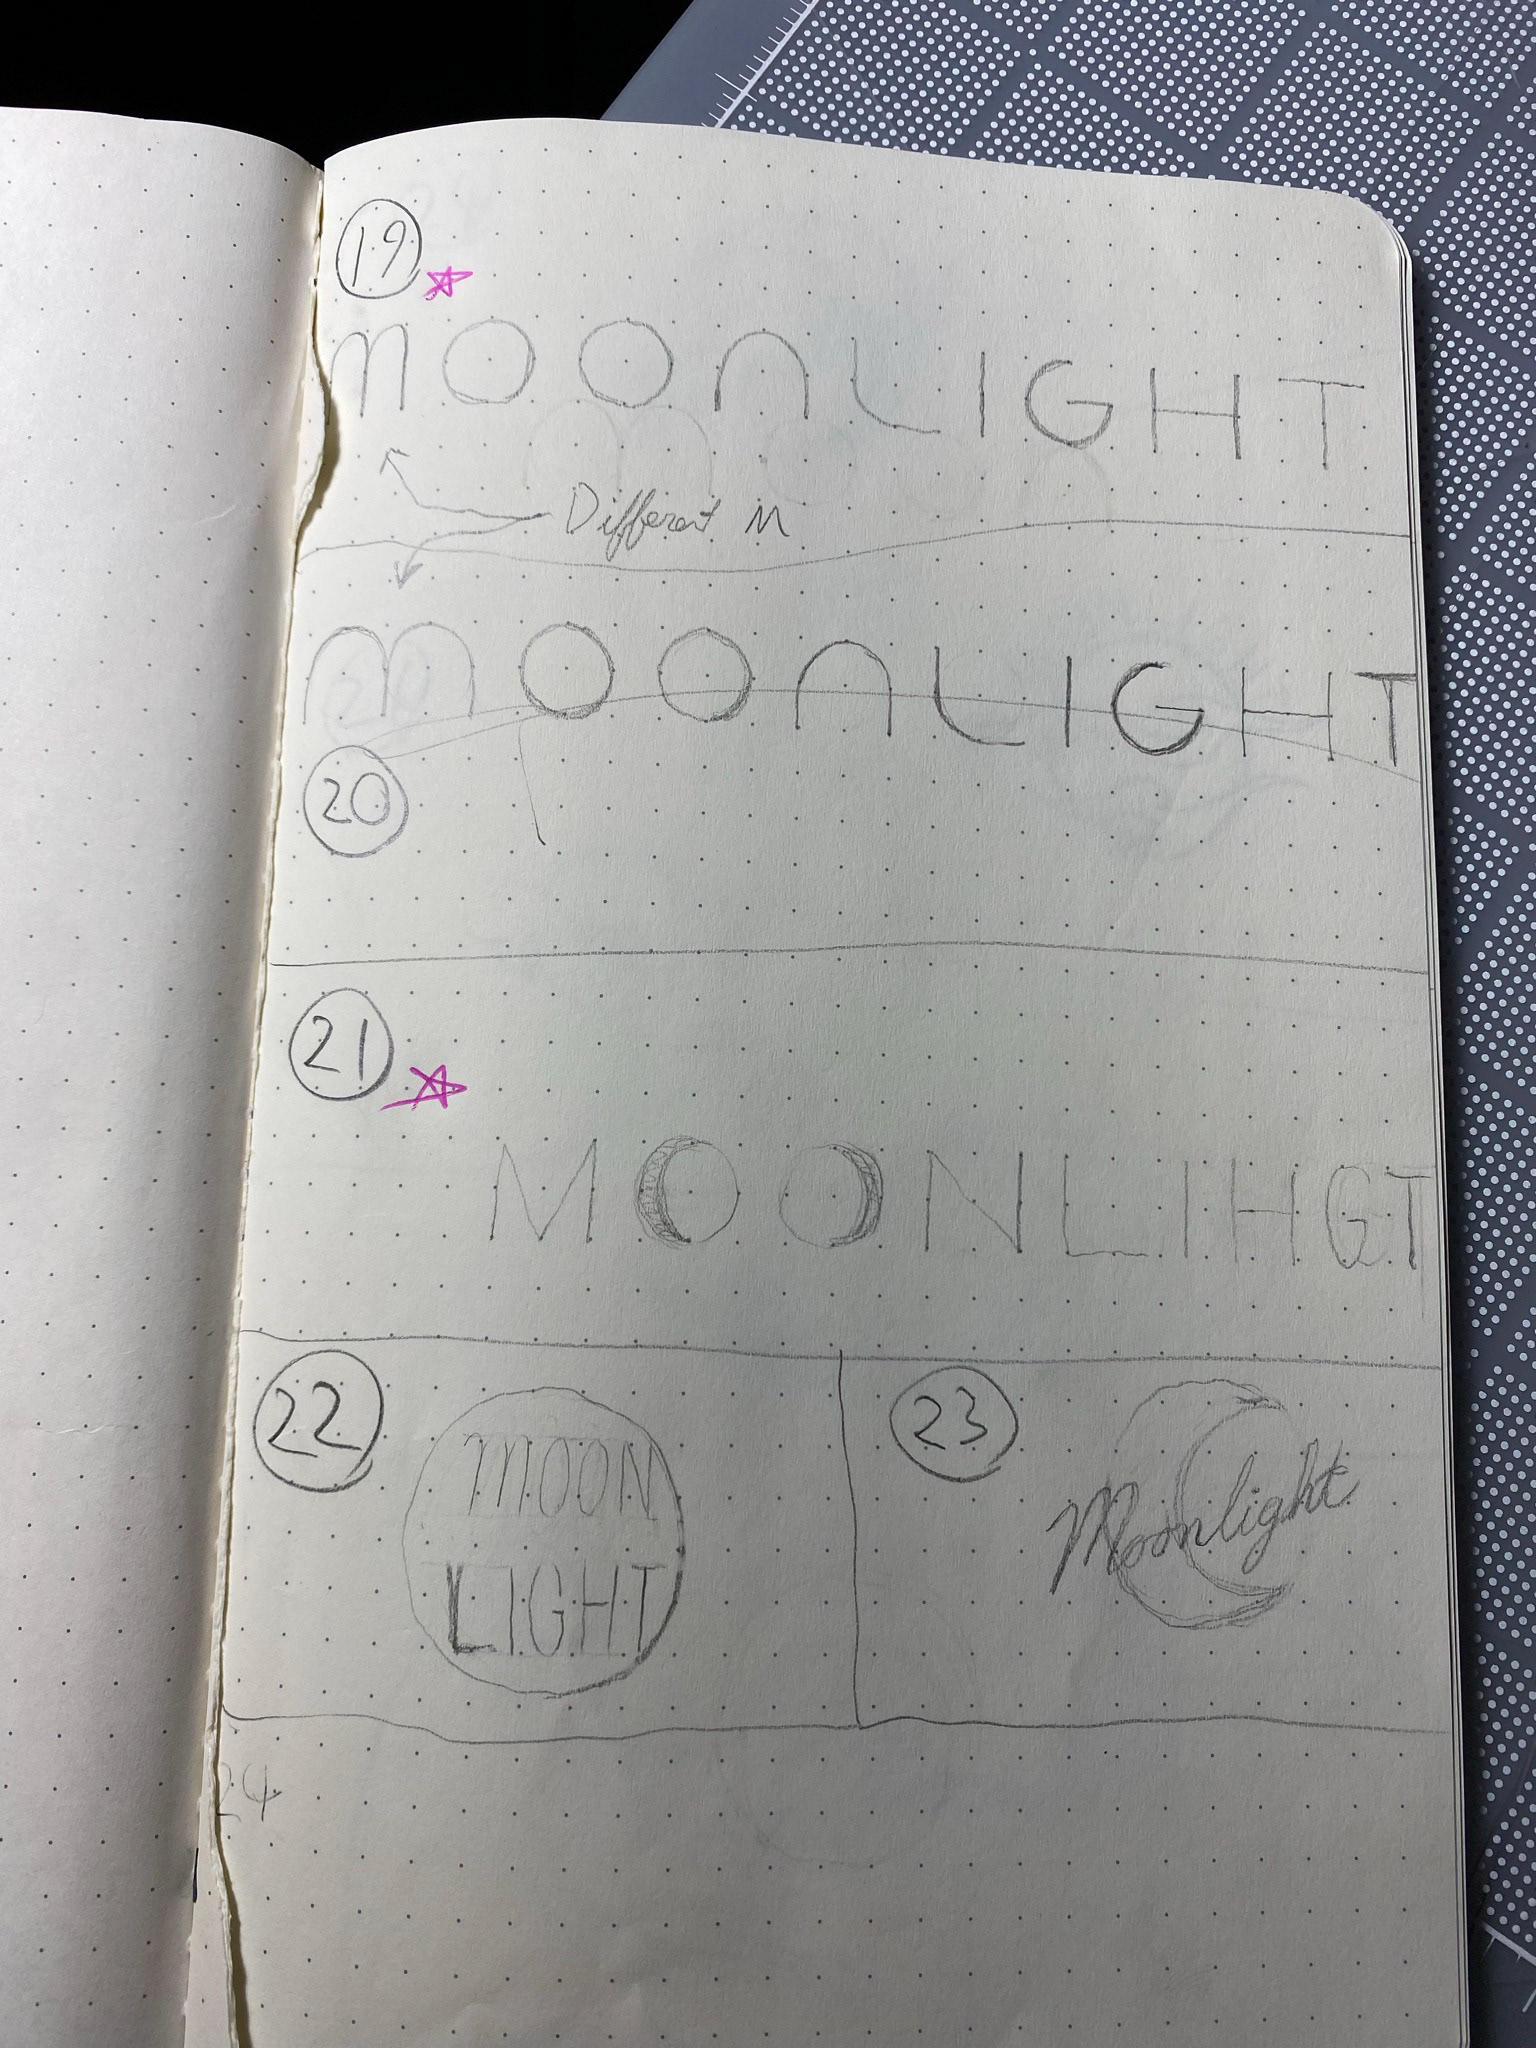 19
mOOnLIGHT
Different M
mOOnLIGHT
20
21
MOONLIHGT
22
MOON
LIGHT
23
Moonlight
24